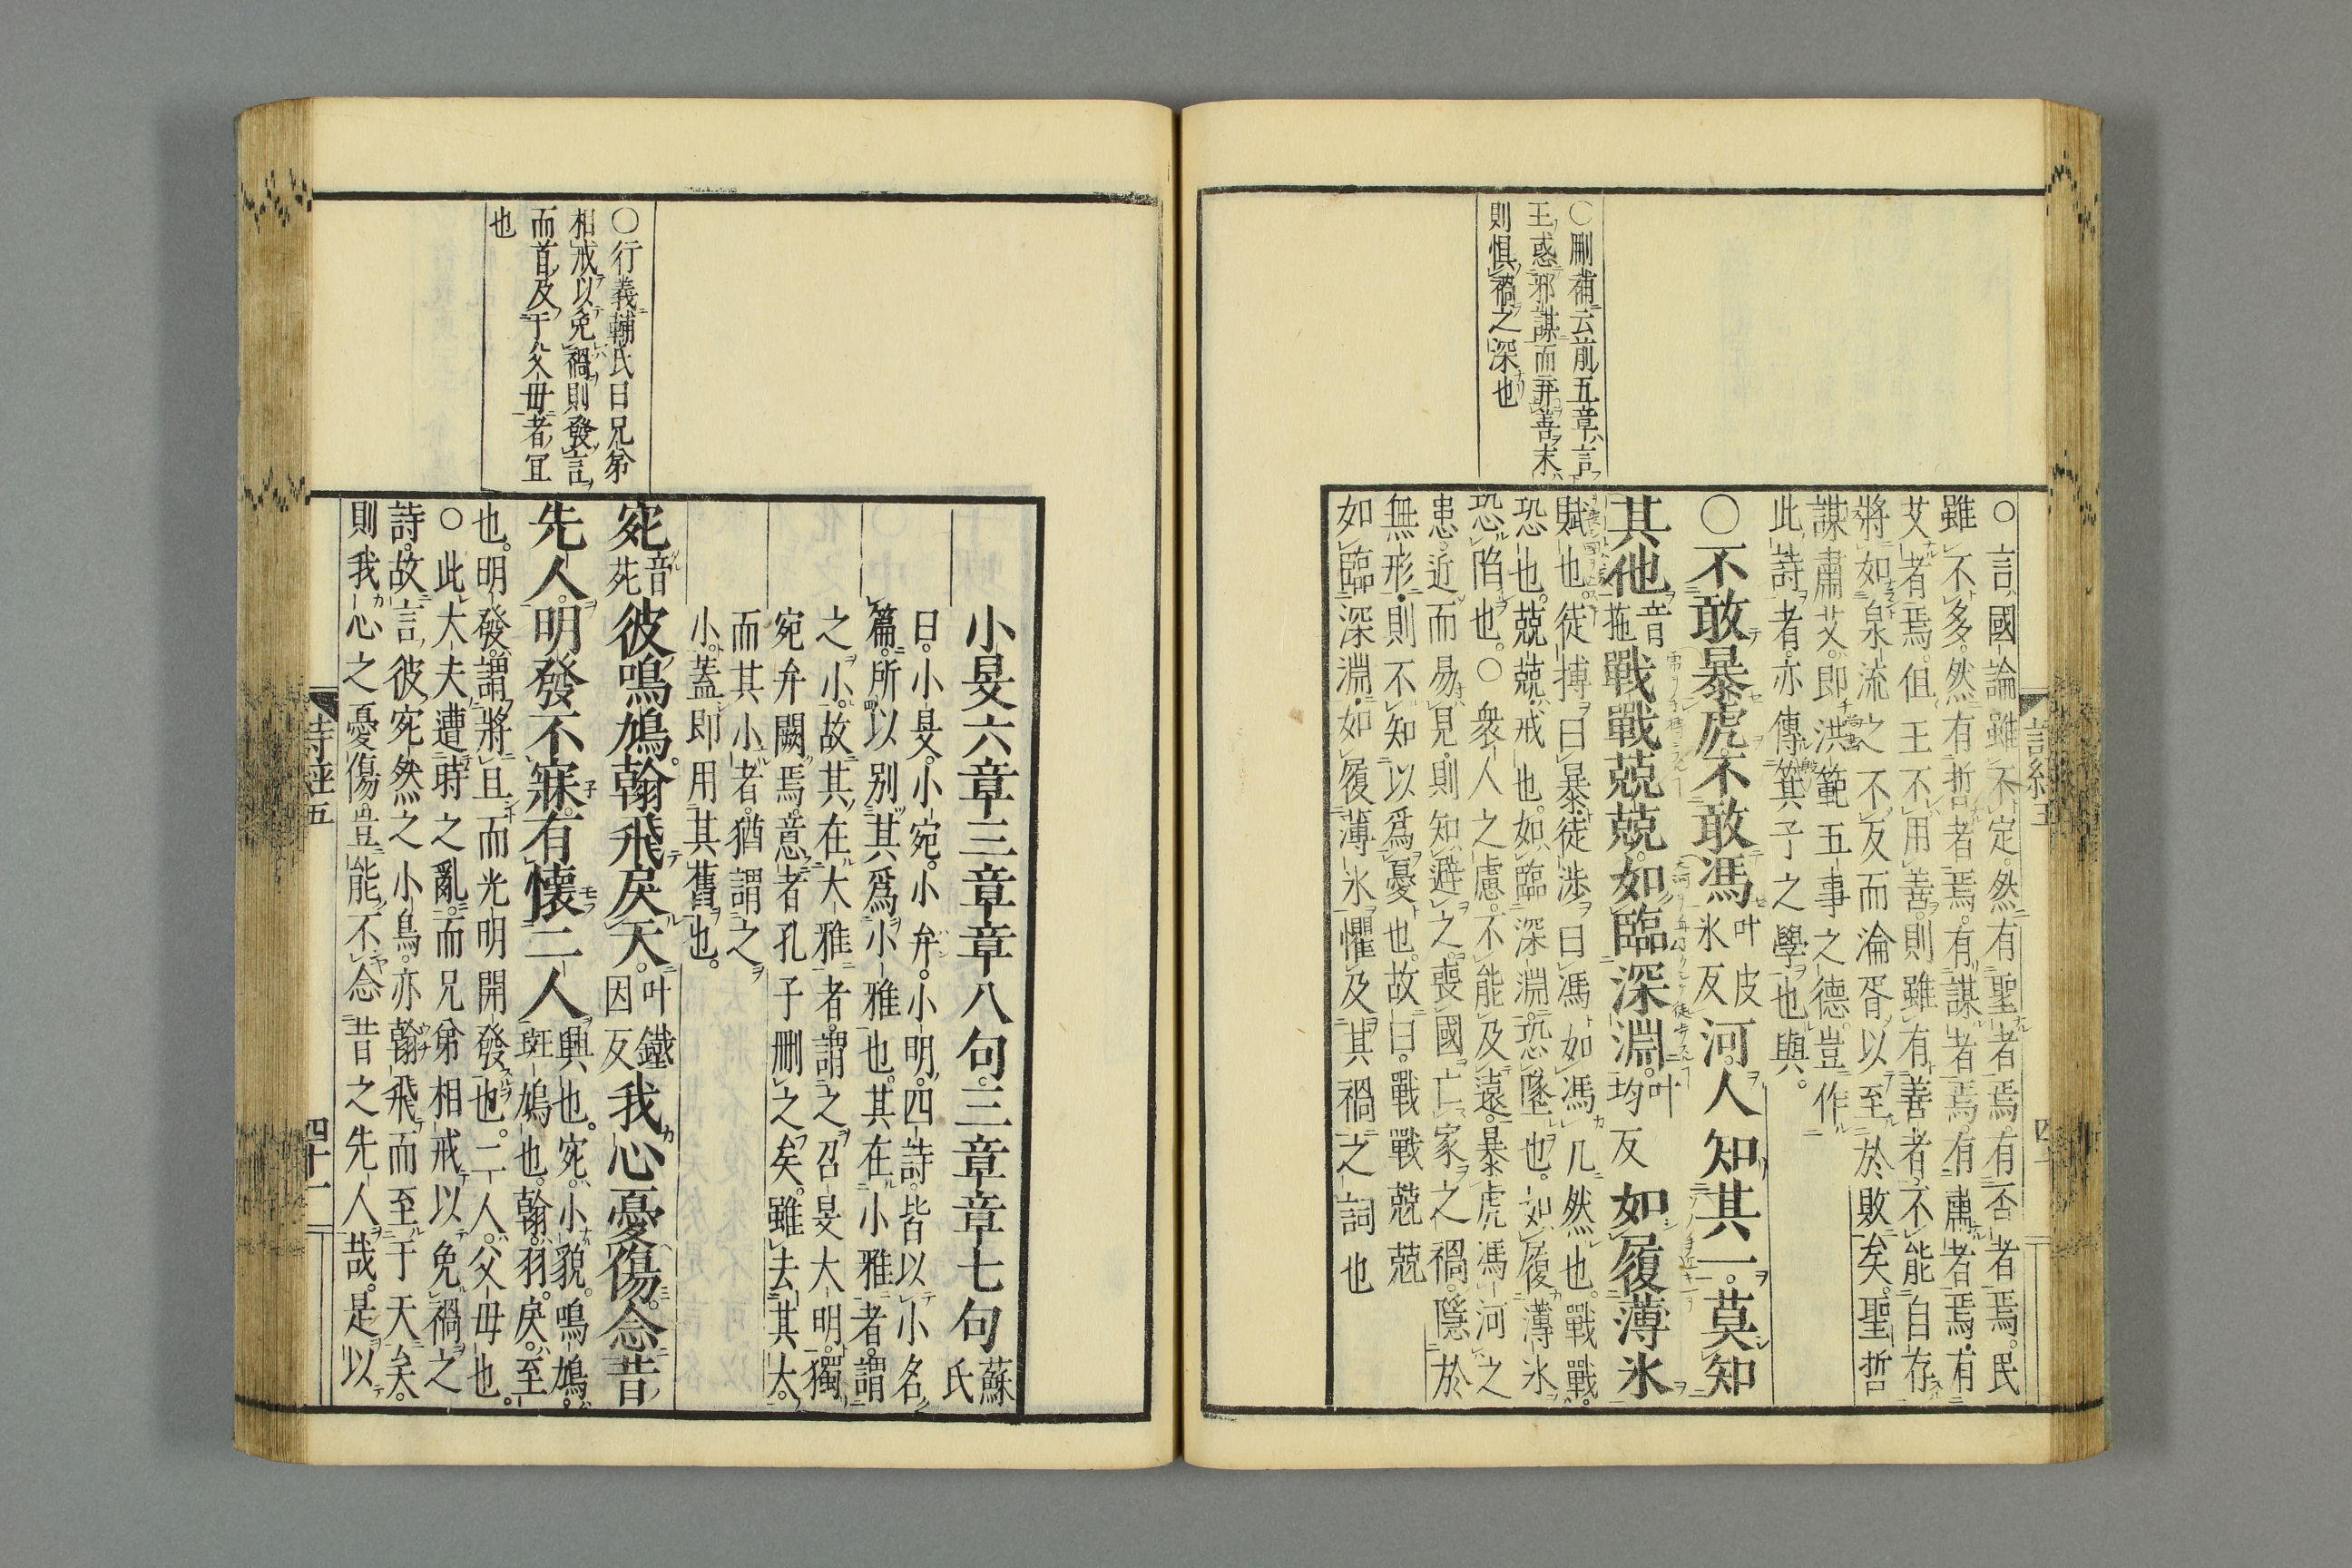 ○刪補云前五章言
王惑邪謀而弃善末
則惧禍之深也
○言國論雖不定。然有聖者焉。有否者焉。民
雖不多。然有哲者焉。有謀者焉。有肅者焉。有
艾者焉。但王不用善。則雖有善者不能自存
將如泉流之不反而淪胥以至於敗矣。聖哲
謀肅艾。即洪範五事之德。豈作
此詩者。亦傳箕子之學也與。
○不敢暴虎。不敢馮叶皮冰反河。人知其一。莫知
其他音拖戰戰兢兢。如臨深淵。叶均反如履薄氷
賦也。徒搏曰暴。徒渉曰馮。如馮几然也。戰戰。
恐也。兢兢。戒也。如臨深淵。恐墜也。如履薄氷
恐陷也。○衆人之慮。不能及遠。暴虎馮河之
患。近而易見。則知避之。喪國亡家之禍。隱於
無形。則不知以爲憂也。故曰。戰戰兢兢
如臨深淵。如履薄氷。懼及其禍之詞也
詩經五
○行義輔氏曰兄弟
相戒以免禍則發言
而首及于父母者冝
也
小旻六章三章章八句。三章章七句蘇氏
曰。小旻。小宛。小弁。小明。四詩。皆以小名
篇。所以别其爲小雅也。其在小雅者。謂
之小。故其在大雅者。謂之召旻大明。獨
宛弁闕焉。意者孔子刪之矣。雖去其大。
而其小者。猶謂之
小。蓋即用其舊也。
宛音死彼鳴鳩。翰飛戾天。叶鐵因反我心憂傷。念昔
先人。明發不寐。有懷二人興也。宛。小貌。鳴鳩。斑鳩也。翰。羽。戾。至
也。明發。謂將旦而光明開發也。二人。父母也。
○此大夫遭時之亂。而兄弟相戒以免禍之
詩。故言彼宛然之小鳥。亦翰飛而至于天矣。
則我心之憂傷。豈能不念昔之先人哉。是以
詩經五
四十一